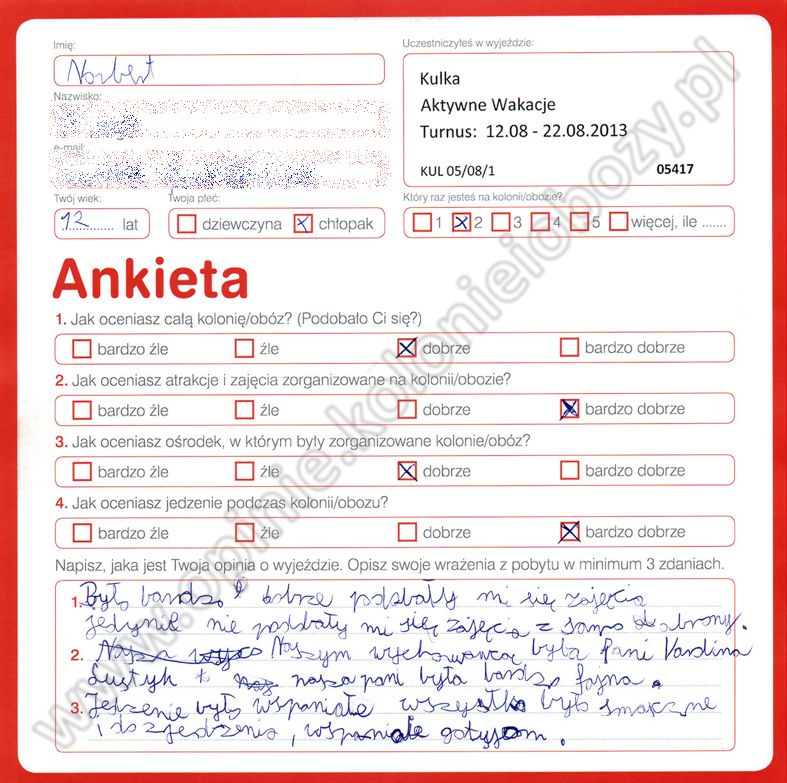 Imię:
Norbert
Nazwisko:
e-mail:
Twój wiek:
12 lat
Twoja płeć:
dziewczyna chłopak
Uczestniczyłeś w wyjeździe:
Kulka
Aktywne Wakacje
Turnus: 12.08 - 22.08.2013
KUL 05/08/1 05417
Który raz jesteś na kolonii/obozie?
1 2 3 4 5 więcej, ile .......
Ankieta
1. Jak oceniasz całą kolonię/obóz? (Podobało Ci się?)
bardzo źle źle dobrze bardzo dobrze
2. Jak oceniasz atrakcje i zajęcia zorganizowane na kolonii/obozie?
bardzo źle źle dobrze bardzo dobrze
3. Jak oceniasz ośrodek, w którym były zorganizowane kolonie/obóz?
bardzo źle źle dobrze bardzo dobrze
4. Jak oceniasz jedzenie podczas kolonii/obozu?
bardzo źle źle dobrze bardzo dobrze
Napisz, jaka jest Twoja opinia o wyjeździe. Opisz swoje wrażenia z pobytu w minimum 3 zdaniach.
1. Było bardzo dobrze podobały mi się zajęcia
jedynie nie podobały mi się zajęcia z samo obrony.
2. Naszym wychowawcą była Pani
nasza pani była bardzo fajna.
3. Jedzenie było wspaniałe wszystko było smaczne
i do zjedzenia, wspaniale gotują.
www.opinie.kolonieiobozy.pl